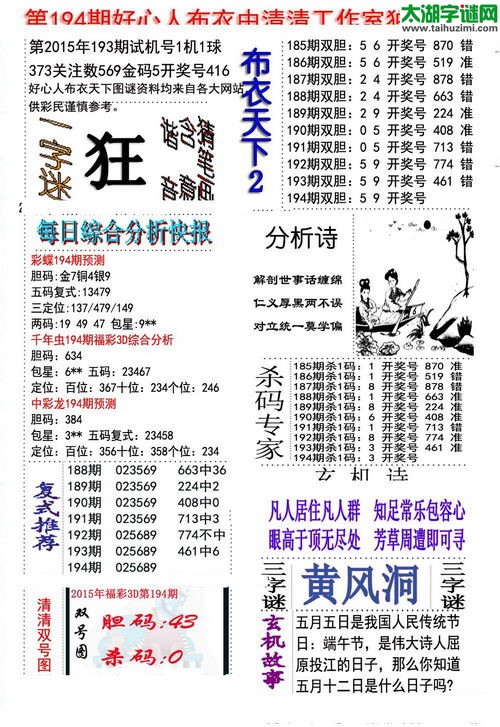 太湖字谜网
http://www.taihuzimi.com
第194期好心人布衣中清清工作室独
第2015年193期试机号1机1球
373关注数569金码5开奖号416
好心人布衣天下图谜资料均来自各大网站,
供彩民谨慎参考。
一字谜
狂
布衣天下2
185期双胆: 5 6 开奖号 870 错
186期双胆: 2 4 开奖号 519 错
187期双胆: 2 4 开奖号 878 错
188期双胆: 2 4 开奖号 663 错
189期双胆: 2 9 开奖号 224 准
190期双胆: 0 5 开奖号 408 准
191期双胆: 0 5 开奖号 713 错
192期双胆: 5 9 开奖号 774 错
193期双胆: 5 9 开奖号 461 错
194期双胆: 5 9 开奖号
每日综合分析快报
彩蝶194期预测
胆码:金7铜4银9
五码复式:13479
三定位:137/479/149
两码:19 49 47 包星:9**
千年虫194期福彩3D综合分析
胆码: 634
包星: 6** 五码: 23467
定位: 百位: 367十位: 234个位: 246
中彩龙194期预测
胆码: 384
包星: 3** 五码: 23458
定位: 百位: 356十位: 358个位: 234
分析诗
解剖世事话缠绵
仁义厚黑两不误
对立统一莫学偏
杀码专家
185期杀1码: 1 开奖号 870 准
186期杀1码: 1 开奖号 519 错
187期杀1码: 8 开奖号 878 错
188期杀1码: 1 开奖号 663 准
189期杀1码: 8 开奖号 224 准
190期杀1码: 6 开奖号 408 准
191期杀1码: 8 开奖号 713 准
192期杀1码: 8 开奖号 774 准
193期杀1码: 3 开奖号 461 准
194期杀1码: 3 开奖号
玄机诗
复式推荐
188期 023569 663中36
189期 023569 224中2
190期 023569 408中0
191期 023569 713中3
192期 023569 774不中
193期 023569 461中6
194期 023569
凡人居住凡人群 知足常乐包容心
眼高于顶无尽处 芳草周遭即可寻
清清双号图
2015年福彩3D第194期
双号图
胆码:43
杀码:0
三字谜
黄风洞
三字谜
玄机故事
五月五日是我国人民传统节
日:端午节,是伟大诗人屈
原投江的日子,那么你知道
五月十二日是什么日子吗?